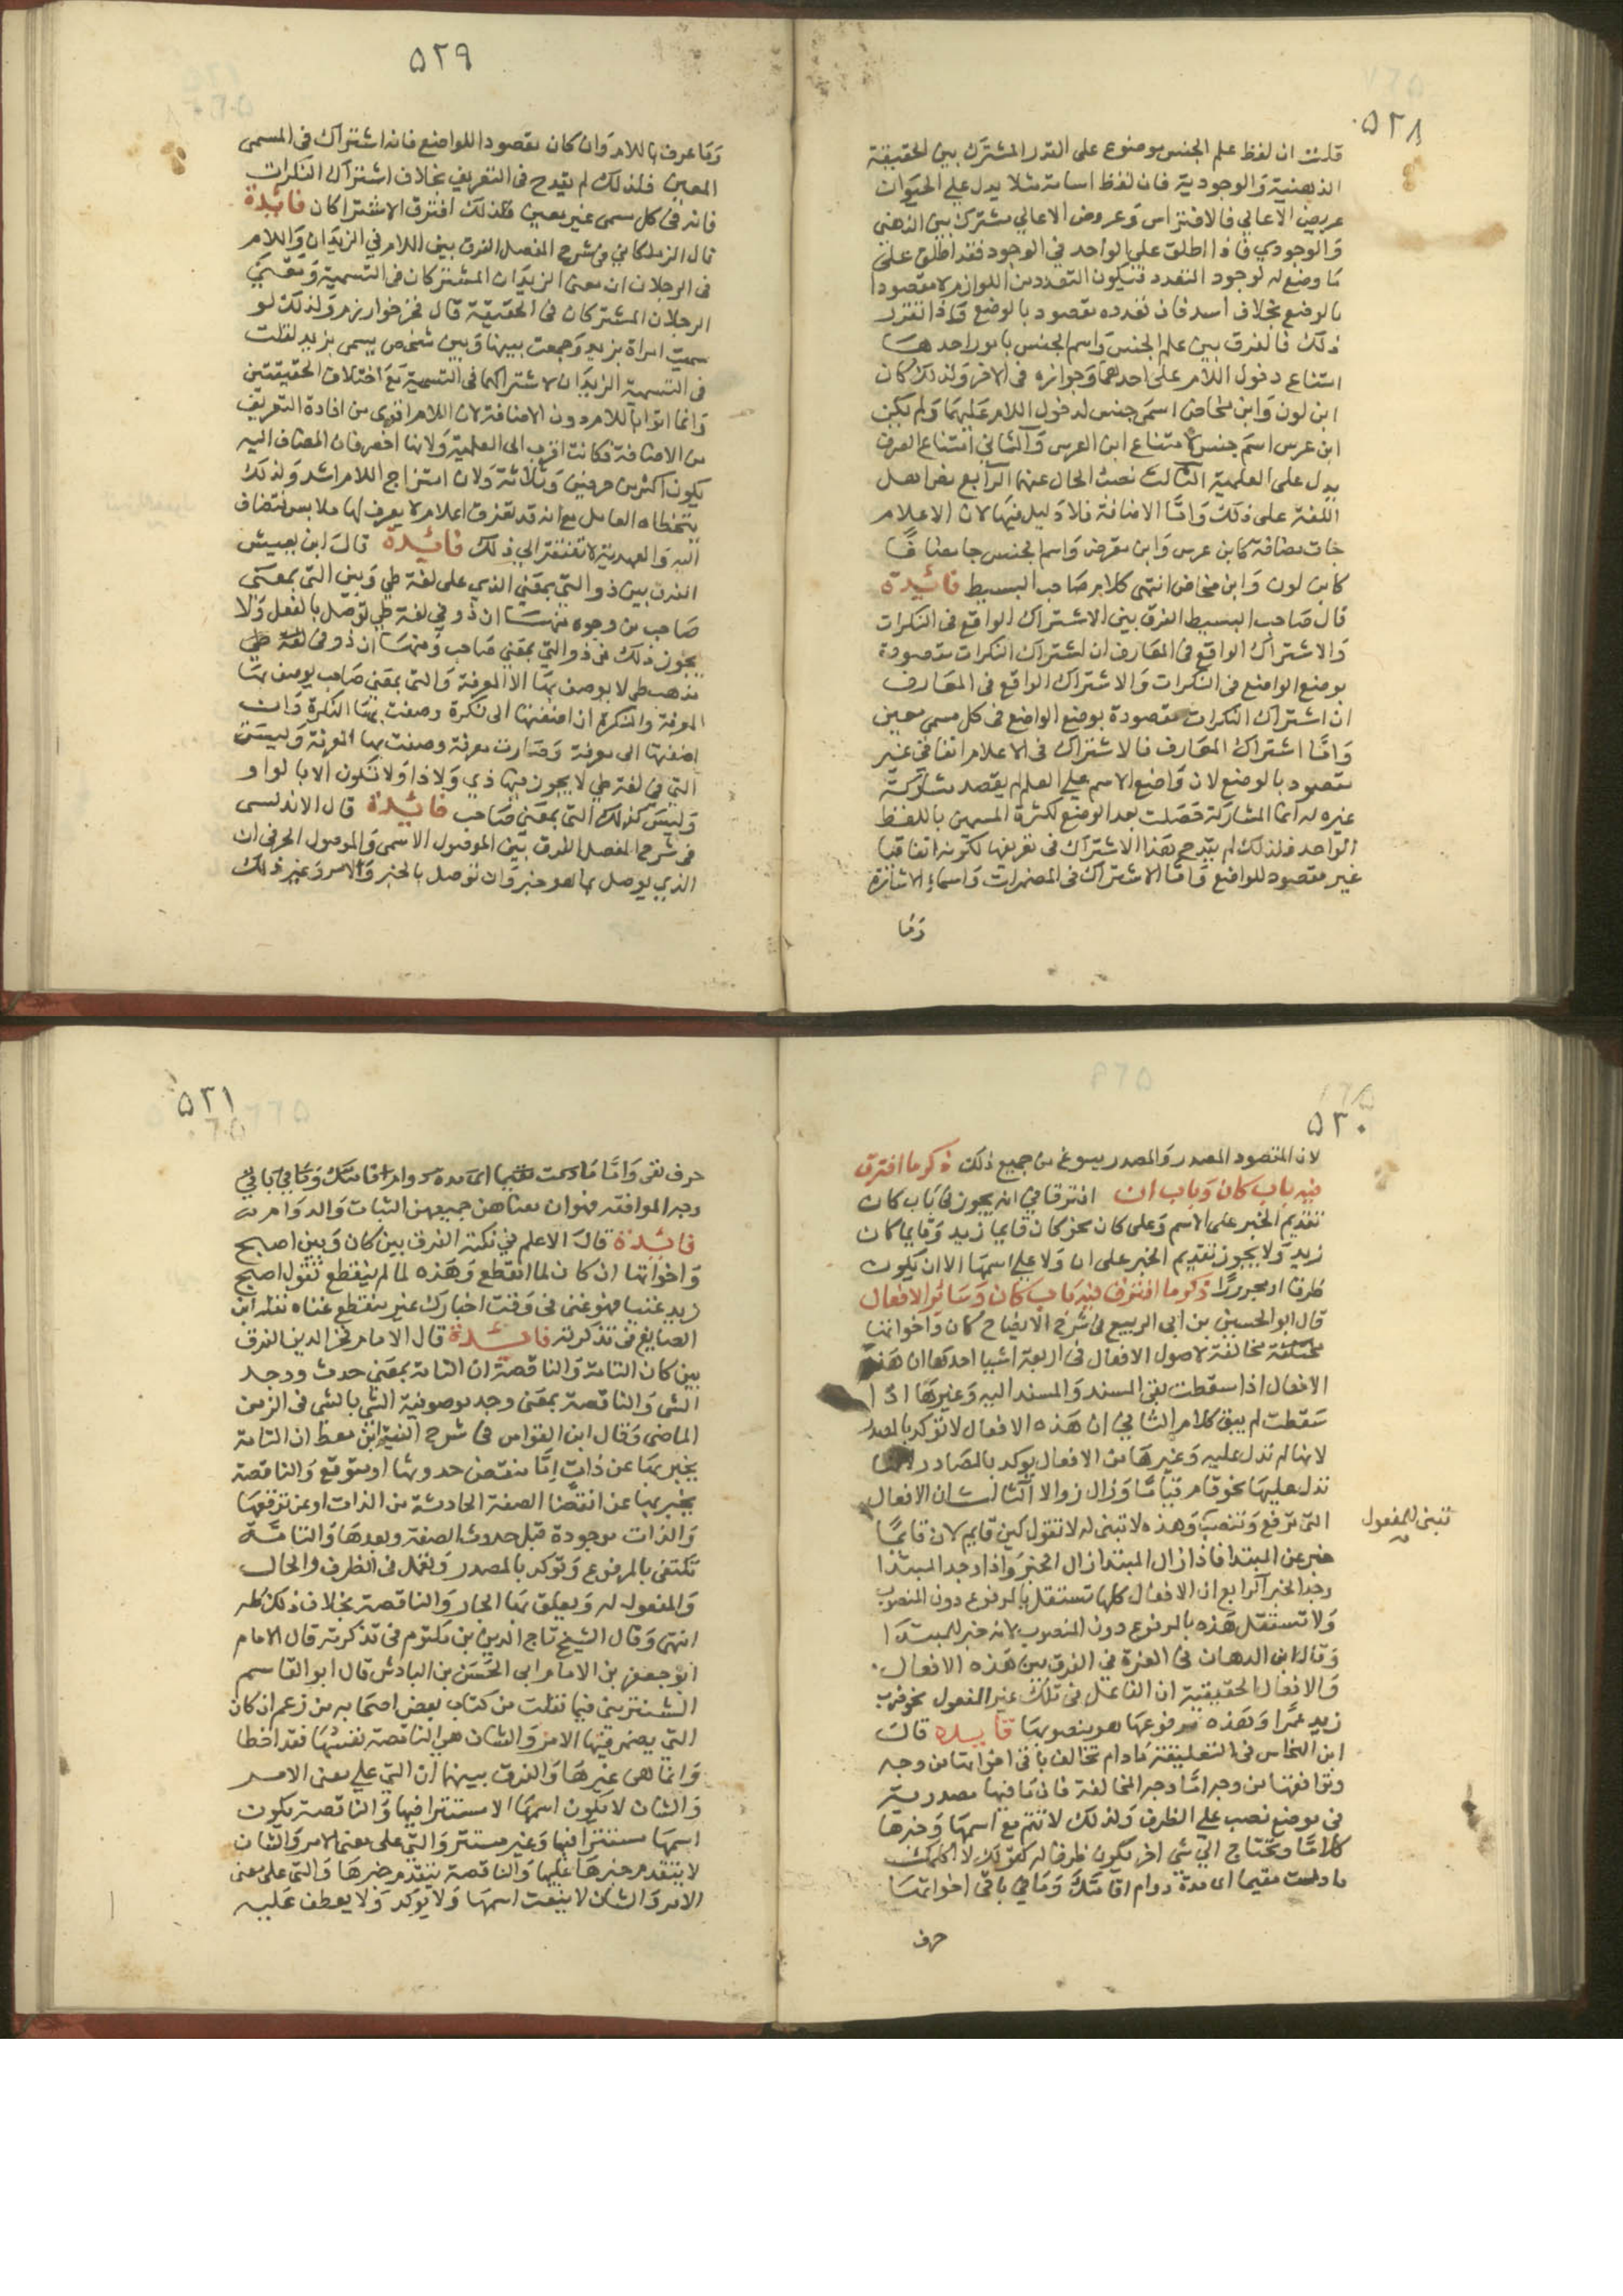 ٥٢٨
قلت ان لفظ علم الجنس موضوع على القدر المشترك بين الحقيقة
الذهنية والوجودية فان لفظ اسامة مثلا يدل على الحيوان
عريض الاعالي فالافتراس وعروض الاعالي مشترك بين الذهنى
والوجودي فاذا اطلق على الواحد في الوجود فقد اطلق على
ما وضع له لوجود التعدد فيكون التعدد من اللوازم لا مقصودا
بالوضع بخلاف اسد فان تعدده مقصود بالوضع واذا تقرر
ذلك فالفرق بين علم الجنس واسم الجنس بامور احدها
امتناع دخول اللام على احدهما وجوازه فى الاخر ولذلك كان
ابن لون وابن مخاض اسمى جنس لدخول اللام عليهما ولم يكن
ابن عرس اسم جنس لامتناع ابن العرس والثاني امتناع الصرف
يدل على العلمية الثالث نصب الحال عنها الرابع نص اهل
اللغة على ذلك واما الاضافة فلا دليل فيها لان الاعلام
جات مضافة كابن عرس وابن مقرض واسم الجنس جا مضافا
كابن لون وابن مخاض انتهى كلام صاحب البسيط فائدة
قال صاحب البسيط الفرق بين الاشتراك الواقع فى النكرات
والاشتراك الواقع فى المعارف ان اشتراك النكرات مقصودة
بوضع الواضع فى النكرات والاشتراك الواقع فى المعارف
ان اشتراك النكرات مقصودة بوضع الواضع فى كل مسمى معين
واما اشتراك المعارف فالاشتراك فى الاعلام اتفاقى غير
مقصود بالوضع لان واضع الاسم على العلم لم يقصد مشاركة
غيره له انما المشاركة حصلت بعد الوضع لكثرة المسمين باللفظ
الواحد فلذلك لم يقدح هذا الاشتراك فى تعريفها لكونه اتفاقيا
غير مقصود للواضع واما الاشتراك فى المضمرات واسماء الاشارة
وما
٥٢٩
وما عرف باللام وان كان مقصودا للواضع فانه اشتراك فى المسمى
المعين فلذلك لم يقدح فى التعريف بخلاف اشتراك النكرات
فانه فى كل مسمى غير معين فلذلك افترق الاشتراكان فائدة
قال الزملكاني فى شرح المفصل الفرق بين اللام في الزيدان واللام
فى الرجلان ان معنى الزيدان المشتركان فى التسمية ومعنى
الرجلان المشتركان فى الحقيقة قال فخر خوارزم ولذلك لو
سميت امراة بزيد وجمعت بينها وبين شخص يسمى بزيد لقلت
فى التسمية الزيدان لاشتراكهما فى التسمية مع اختلاف الحقيقتين
وانما اتوا باللام دون الاضافة لان اللام اقوى من افادة التعريف
من الاضافة فكانت اقرب الى العلمية ولانها اخصر فان المضاف اليه
يكون اكثر من حرفين وثلاثة ولان امتزاج اللام اشد ولذلك
يتخطاه العامل مع انه قد تقترن اعلام لا يعرف لها ملابس فتضاف
اليه والعهدية لا تفتقر الى ذلك فائدة قال ابن يعيش
الفرق بين ذو التي بمعنى الذي على لغة طي وبين التي بمعنى
صاحب من وجوه منها ان ذو في لغة طي توصل بالفعل ولا
يجوز ذلك فى ذو التي بمعنى صاحب ومنها ان ذو فى لغة طي
مذهب طي لا يوصف بها الا المعرفة والتى بمعنى صاحب يوصف بها
المعرفة والنكرة ان اضفتها الى نكرة وصفت بها النكرة وان
اضفتها الى معرفة وصارت معرفة وصفت بها المعرفة وليست
التي في لغة طي لا يجوز فيها ذي ولا ذا ولا تكون الا بالواو
وليس كذلك التى بمعنى صاحب فائدة قال الاندلسى
فى شرح المفصل الفرق بين الموصول الاسمى والموصول الحرفى ان
الذي يوصل بما هو خبر وان توصل بالخبر والامر وغير ذلك
٥٣٠
لان المقصود المصدر والمصدر يسوغ من جميع ذلك ذكر ما افترق
فيه باب كان وباب ان افترقا في انه يجوز فى باب كان
تقديم الخبر على الاسم وعلى كان نحو كان قايما زيد وقايما كان
زيد ولا يجوز تقديم الخبر على ان ولا على اسمها الا ان يكون
ظرفا او مجرورا ذكر ما افترق فيه باب كان وسائر الافعال
قال ابو الحسين بن ابى الربيع فى شرح الايضاح كان واخواتها
مخالفة لاصول الافعال فى اربعة اشيا احدها ان هذه
الافعال اذا سقطت بقى المسند والمسند اليه وغيرها اذا
سقطت لم يبق كلام الثاني ان هذه الافعال لا تؤكد بالمصدر
لانها لم تدل عليه وغيرها من الافعال يوكد بالمصادر
تدل عليها نحو قام قياما وزال زوالا الثالث ان الافعال
التى ترفع وتنصب وهذه لا تبنى له لا تقول كين قايم لان قايما
تبنى للمفعول
خبر عن المبتدا فاذا زال المبتدا زال الخبر واذا وجد المبتدا
وجد الخبر الرابع ان الافعال كلها تستقل بالمرفوع دون المنصوب
ولا تستقل هذه بالمرفوع دون المنصوب لانه خبر للمبتدا
وقال ابن الدهان فى الغرة في الفرق بين هذه الافعال
والافعال الحقيقية ان الفاعل فى تلك غير المفعول نحو ضرب
زيد عمرا وهذه مرفوعها هو منصوبها فايده قال
ابن النحاس فى التعليقة مادام تخالف باقى اخواتها من وجه
وتوافقها من وجه اما وجه المخالفة فان ما فيها مصدرية
فى موضع نصب على الظرف ولذلك لا تتم مع اسمها وخبرها
كلاما وتحتاج الى شى اخر يكون ظرفا له كقولك لا اكلمك
مادمت مقيما اى مدة دوام اقامتك وما في باقى اخواتها
حرف
٥٣١
حرف نفى واما مادمت مقيما اى مدة دوام اقامتك وما في باقى
وجه الموافقة فهو ان معناهن جميعهن الثبات والدوام
فائدة قال الاعلم في نكته الفرق بين كان وبين اصبح
واخواتها ان كان لما انقطع وهذه لما لم ينقطع تقول اصبح
زيد غنيا فهو غنى فى وقت اخبارك غير منقطع غناه نقله ابن
الصايغ فى تذكرته فائدة قال الامام فخر الدين الفرق
بين كان التامة والناقصة ان التامة بمعنى حدث ووجد
الشى والناقصة بمعنى وجد موصوفية الشي بالشى فى الزمن
الماضى وقال ابن القواس في شرح الفية ابن معط ان التامة
يخبر بها عن ذات اما منقض حدوثها او متوقع والناقصة
يخبر بها عن انقضا الصفة الحادثة من الذات او عن توقعها
والذات موجودة قبل حدوث الصفة وبعدها والتامة
تكتفى بالمرفوع وتوكد بالمصدر وتعمل فى الظرف والحال
والمفعول له ويعلق بها الجار والناقصة بخلاف ذلك كله
انتهى وقال الشيخ تاج الدين بن مكتوم فى تذكرته قال الامام
ابو جعفر بن الامام ابى الحسن بن الباذش قال ابو القاسم
الشنترينى فيما نقلت من كتاب بعض اصحابه من زعم ان كان
التي يضمر فيها الامر والشان هى الناقصة نفسها فقد اخطا
وانما هى غيرها والفرق بينهما ان التي على معنى الامر
والشان لا يكون اسمها الا مستترا فيها والناقصة يكون
اسمها مستترا فيها وغير مستتر والتى على معنى الامر والشان
لا يتقدم خبرها عليها والناقصة يتقدم خبرها والتى على معنى
الامر والشان لا ينعت اسمها ولا يوكد ولا يعطف عليه